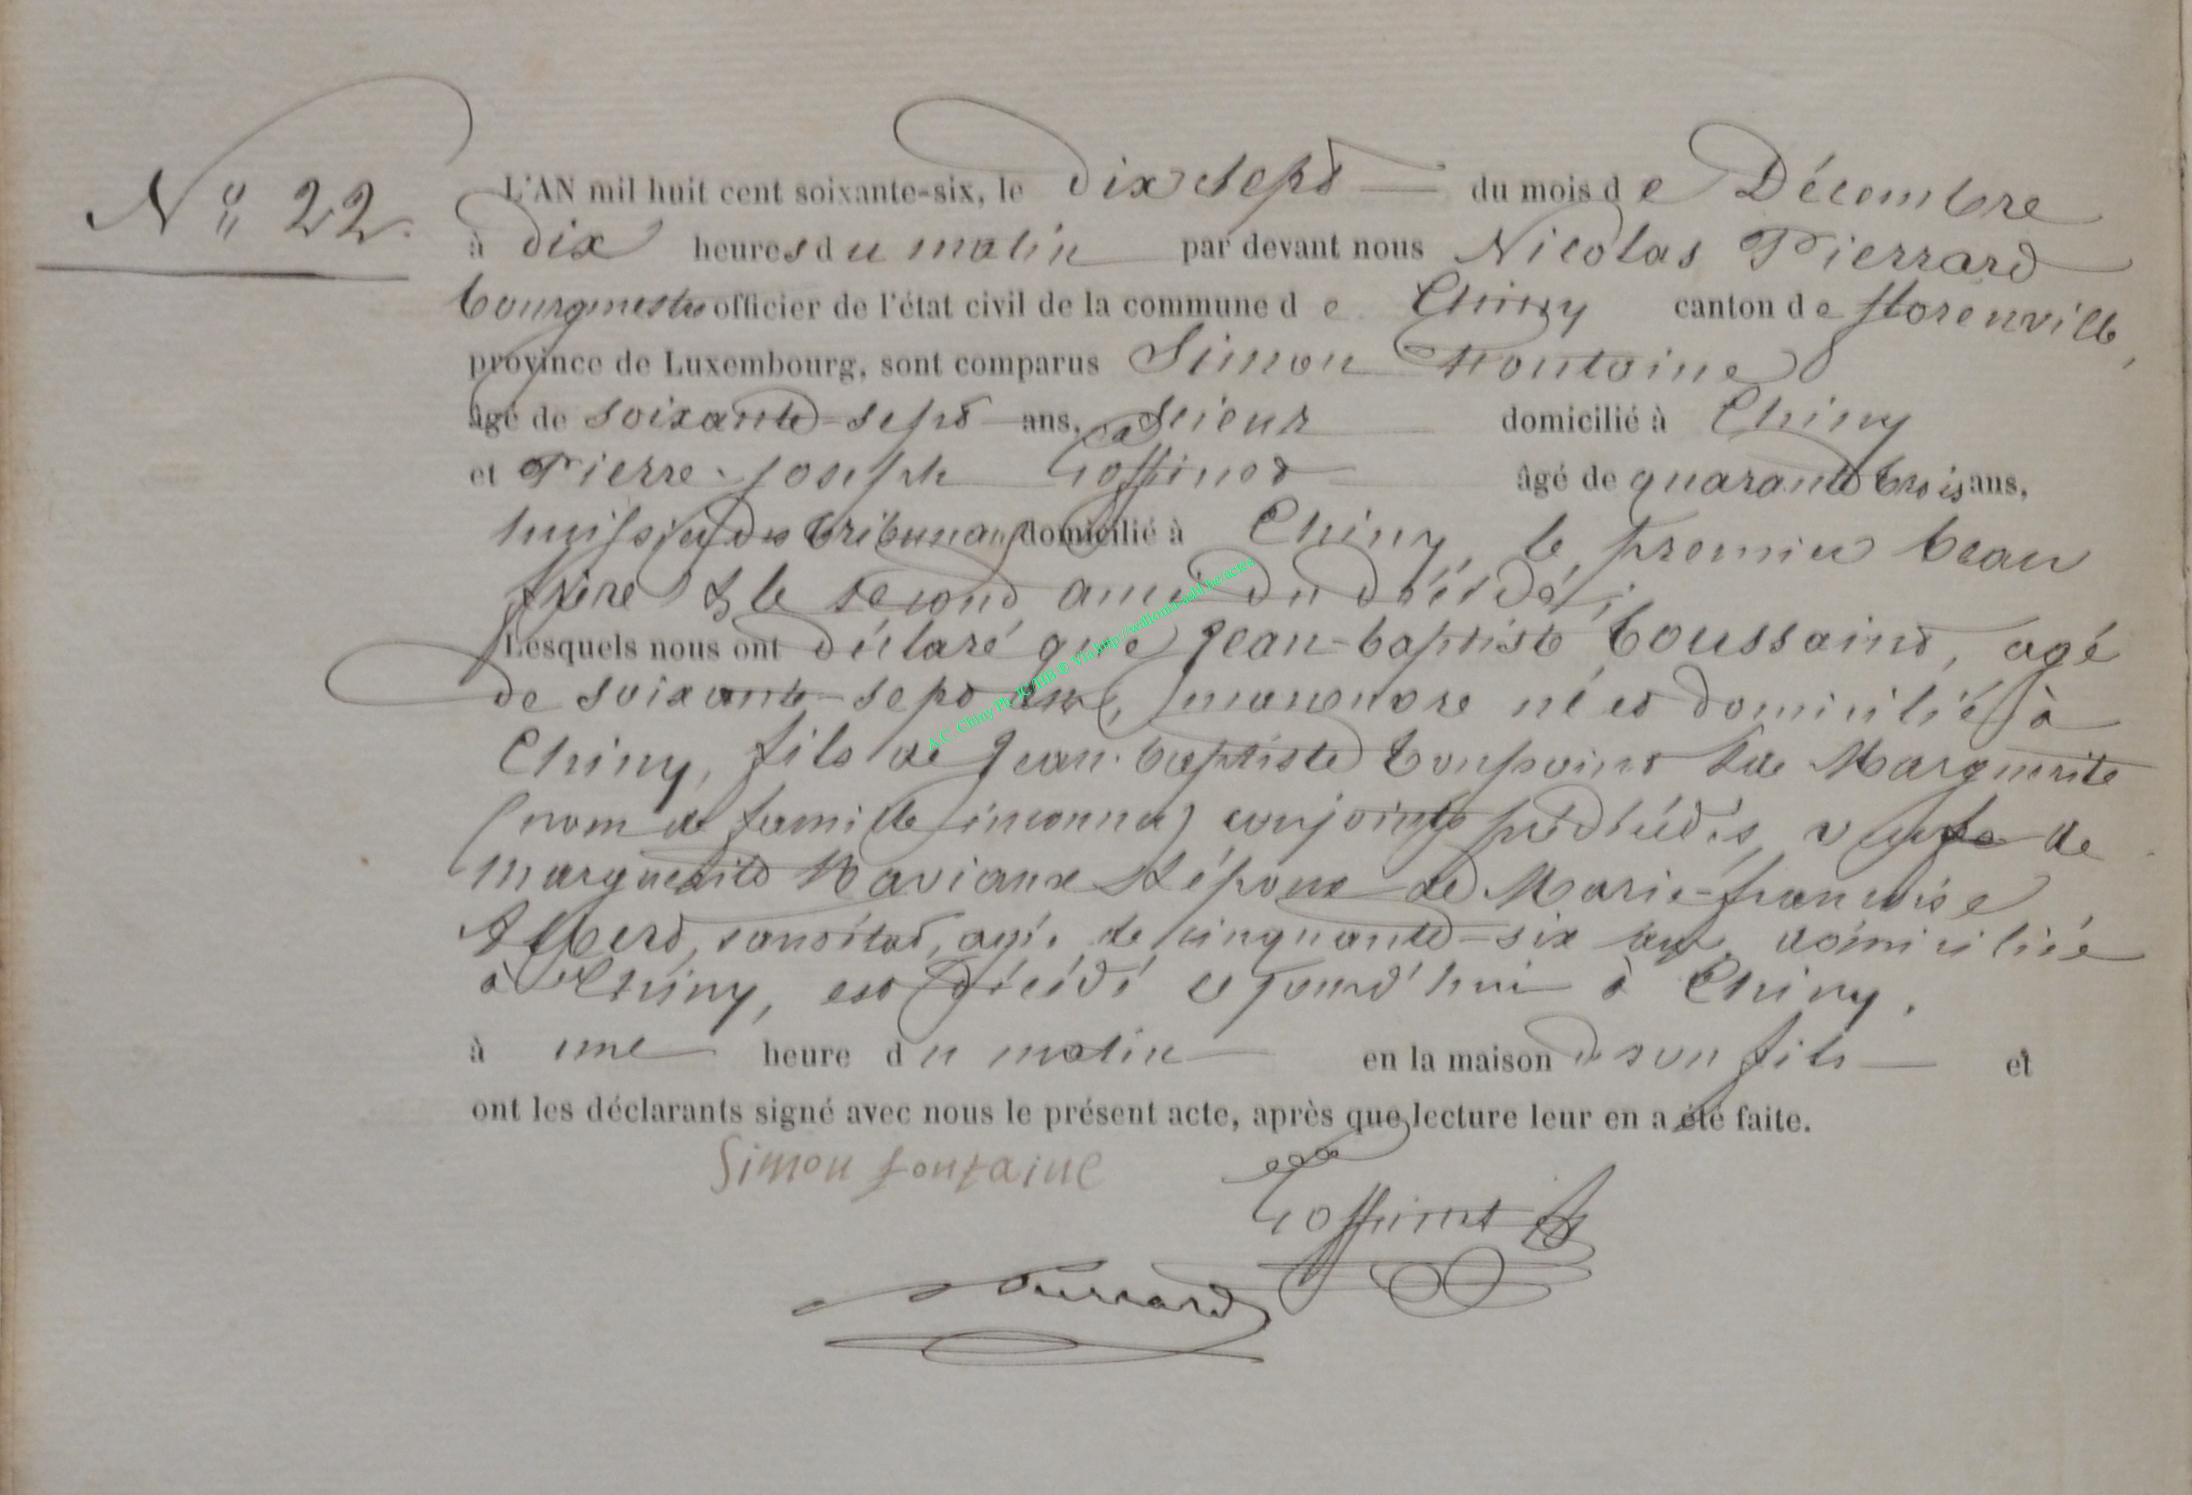 N° 22
L'AN mil huit cent soixante-six, le dix sept du mois de Décembre
à dix heures du matin par devant nous Nicolas Pierrard
bourgmestre officier de l'état civil de la commune de Chiny canton de florenville,
province de Luxembourg, sont comparus Simon Fontaine
âgé de soixante-sept ans, scieur domicilié à Chiny
et Pierre-Joseph Goffinet âgé de quarante trois ans,
huissier des tribunaux domicilié à Chiny, le premier beau
frère & le second ami du décédé;
Lesquels nous ont déclaré que Jean-baptiste toussaint, agé
de soixante-sept ans, manœuvre né et domicilié à
Chiny, fils de Jean-baptiste toussaint & de Marguerite
(nom de famille inconnu) conjoints prédécédés, veuf de
Marguerite & époux de Marie-françoise
Albert, sans état, agée de cinquante-six ans, domiciliée
à Chiny, est décédé ce jourd'hui à Chiny,
à une heure du matin en la maison de son fils et
ont les déclarants signé avec nous le présent acte, après que lecture leur en a été faite.
Simon fontaine
Goffinet
Pierrard
A.C. Chiny Ph. JC HB © Via http://wallonia-asbl.be/actes